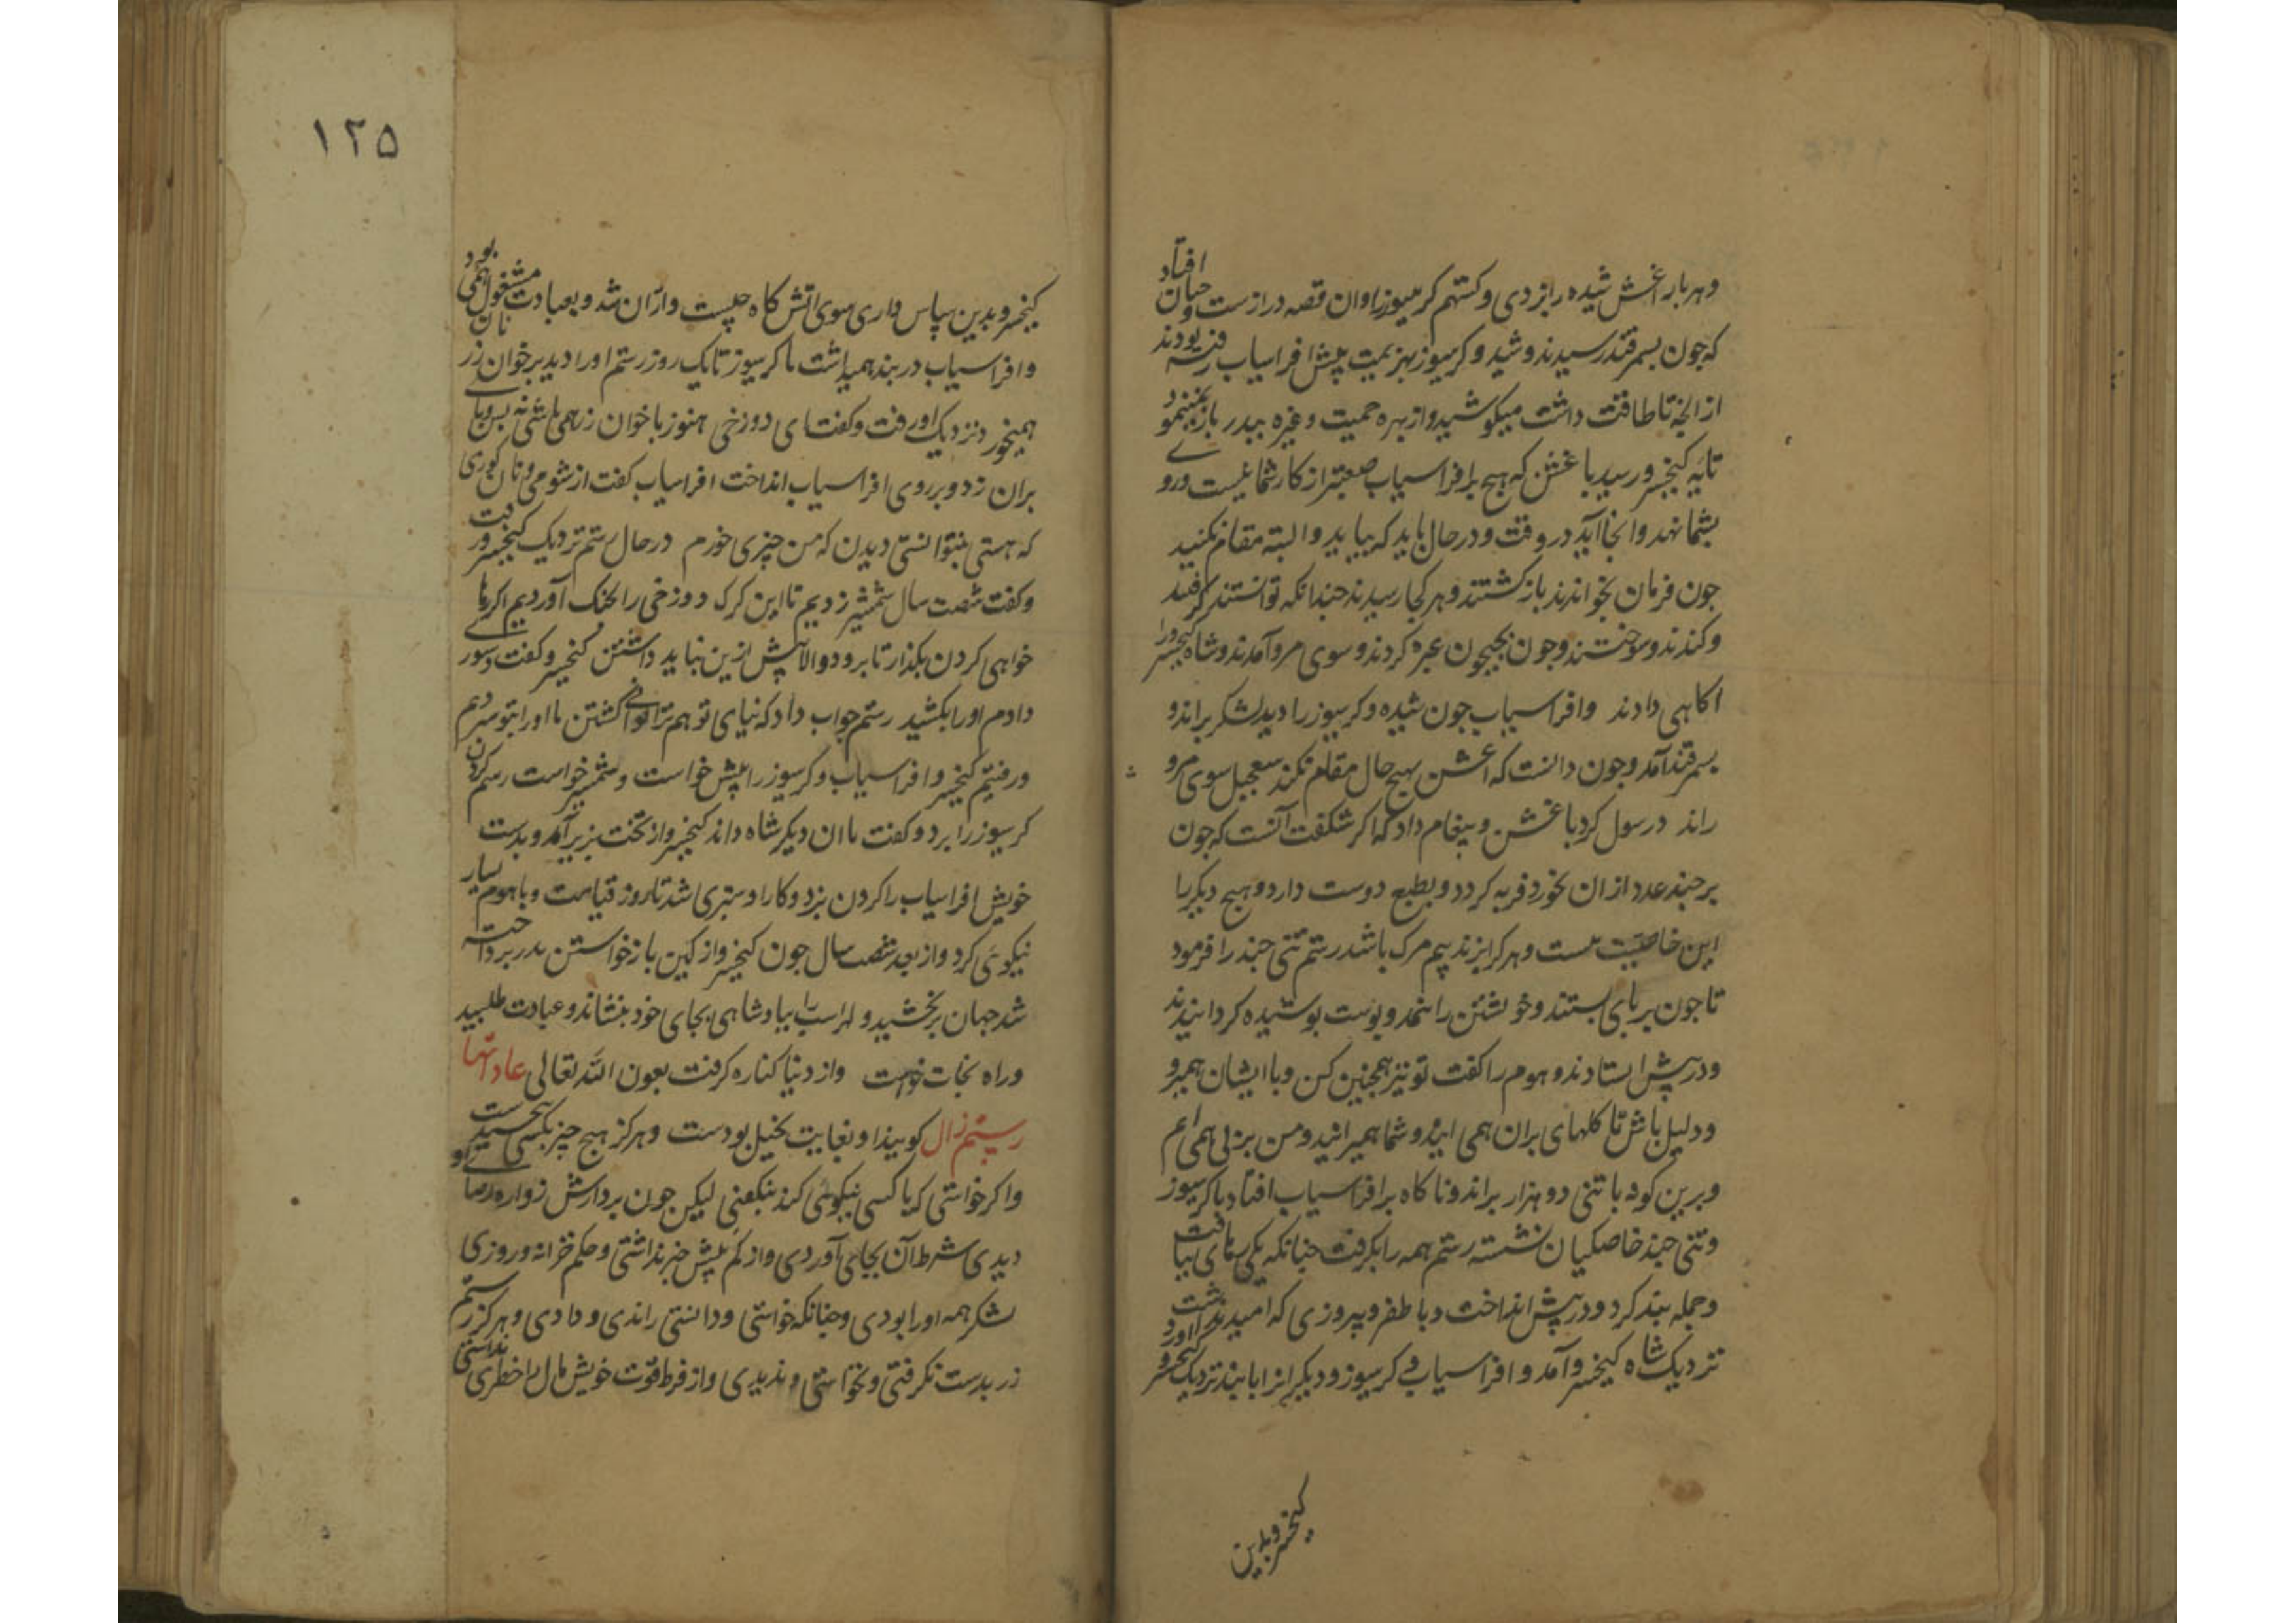 وهربار اغش شیده را بزدی و کستهم کرسیوز را و ان قصه درازست و جنان افتاد
که جون بسمرقند رسیدند و شیده و کرسیوز بهزیمت پیش افراسیاب رفته بودند
تا طاقت داشت میکوشید و از بهره حمیت و غیره بپدر باز
کیخسرو رسید باغش که هیچ بر افراسیاب صعبتر از کار شما نیست و روی
بشما نهد و انجا آید در وقت و در حال باید که بیایید و البته مقام نکنید
جون فرمان بخواندند بازکشتند و هر کجا رسیدند جندانکه توانستند کرفتند
و کندند و سوختند و جون بجیحون عبره کردند و سوی مرو آمدند و شاه کیخسرو را
اکاهی دادند وافراسیاب جون شیده و کرسیوز را دید لشکر براند و
بسمرقند آمد و جون دانست که اغش بهیج حال مقام نکند بتعجیل سوی مرو
راند و رسول کرد باغش و پیغام داد که اکر شکفت آنست که جون
بر جند عدد از ان بخورد فربه کردد و بطبع دوست دارد و هیج دیکر را
این خاصیت هست و هر کرا بزند بیم مرک باشد رستم تنی جند را فرمود
تا جون بر پای بستند و خویشتن را نمد و پوست پوشیده کردانیدند
و در پیش ایستادند و هوم را کفت تو نیز همجنین کن و با ایشان همیرو
و دلیل باش تا کلهای بران همی ایند و شما همیرانید و من بر پی همی ایم
و برین کونه با تنی دو هزار براند و ناکاه بر افراسیاب افتاد با کرسیوز
و تنی جند خاصکیان نشسته رستم همه را بکرفت جنانکه یکی رهای نیافت
و جمله ببند کرد و در پیش انداخت و با ظفر و پیروزی که امید نداشت
نزدیک شاه کیخسرو آمد و افراسیاب و کرسیوز و دیکرانرا با بند نزدیک کیخسرو اورد
کیخسرو بدین
۱۲۵
کیخسرو بدین سپاس داری سوی اتش کاه جیست وازان شد و بعبادت مشغول همی بود
و افراسیاب در بند همیداشت با کرسیوز تا یک روز رستم اورا دید بر خوان زر نان
همیخورد نزدیک اورفت و کفت ای دوزخی هنوز با خوان زر همی باشی نه بس و پای
بران زد و بر روی افراسیاب انداخت افراسیاب کفت از شومی و نان کوری
که هستی بنتوانستی دیدن که من چیزی خورم در حال رستم نزدیک کیخسرو رفت
و کفت شصت سال شمشیر زدیم تا این کرک دوزخی را بجنک آوردیم اکر رها
خواهی کردن بکذار تا برود والا بیش ازین نباید داشتن کیخسرو کفت دستوری
دادم اورا بکشید رستم جواب داد که نیای تو هم ترا توانی کشتن ما اورا بتو سپردیم
و رفتیم کیخسرو افراسیاب و کرسیوز را پیش خواست و شمشیر خواست رستم کردن
کرسیوز را برد و کفت با ان دیکر شاه داند کیخسرو از تخت بزیر آمد و بدست
خویش افراسیاب را کردن بزد و کار او سپری شد تا روز قیامت و با هوم بسیار
نیکوئی کرد و از بعد شصت سال جون کیخسرو از کین بازخواستن پدر پرداخته
شد جهان ببخشید و لهراسب را بپادشاهی بجای خود بنشاند و عبادت طلبید
و راه نجات خواست و از دنیا کناره کرفت بعون الله تعالی عادتها
رستم زال کویند او بغایت بخیل بودست و هرکز هیچ جیز بکسی
و اکر خواستی که با کسی نیکوئی کند بنکفتی لیکن جون برادرش زواره
دیدی شرط آن بجای آوردی و از کم بیش خبر نداشتی و حکم خزانه و روزی
لشکر همه اورا بودی و جنانکه خواستی و دانستی راندی و دادی و هرکز رستم
زر بدست نکرفتی و نخواستی و ندیدی و از فرط قوت خویش مال را خطری نداشتی